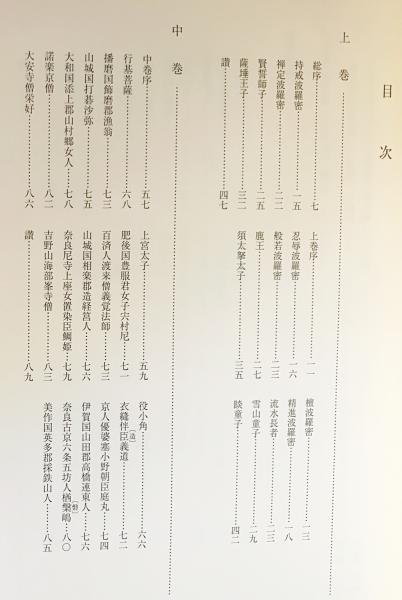 目次
上巻
総序………七 上巻序………一一 檀波羅密………一三
持戒波羅密………一五 忍辱波羅密………一六 精進波羅密………一八
禅定波羅密………二二 般若波羅密………二三 流水長者………二三
賢誓師子………二五 鹿王………二七 雪山童子………二九
薩埵王子………三二 須太拏太子………三五 睒童子………四二
讃………四七
中巻
中巻序………五七 上宮太子………五九 役小角………六六
行基菩薩………六八 肥後国豊服君女子宍村尼………七一 衣縫伴臣〔造〕義道………七二
播磨国飾磨郡漁翁………七三 百済人渡来僧義覚法師………七三 京人優婆塞小野朝臣庭丸………七四
山城国打碁沙弥………七五 山城国相楽郡造経筥人………七六 伊賀国山田郡高橋連東人………七六
大和国添上郡山村郷女人………七八 奈良尼寺上座女置染臣鯛姫………七九 奈良古京六条五坊人栖槃〔磐〕嶋………八〇
諾楽京僧………八二 吉野山海部峯寺僧………八三 美作国英多郡採鉄山人………八五
大安寺僧栄好………八六 讃………八九